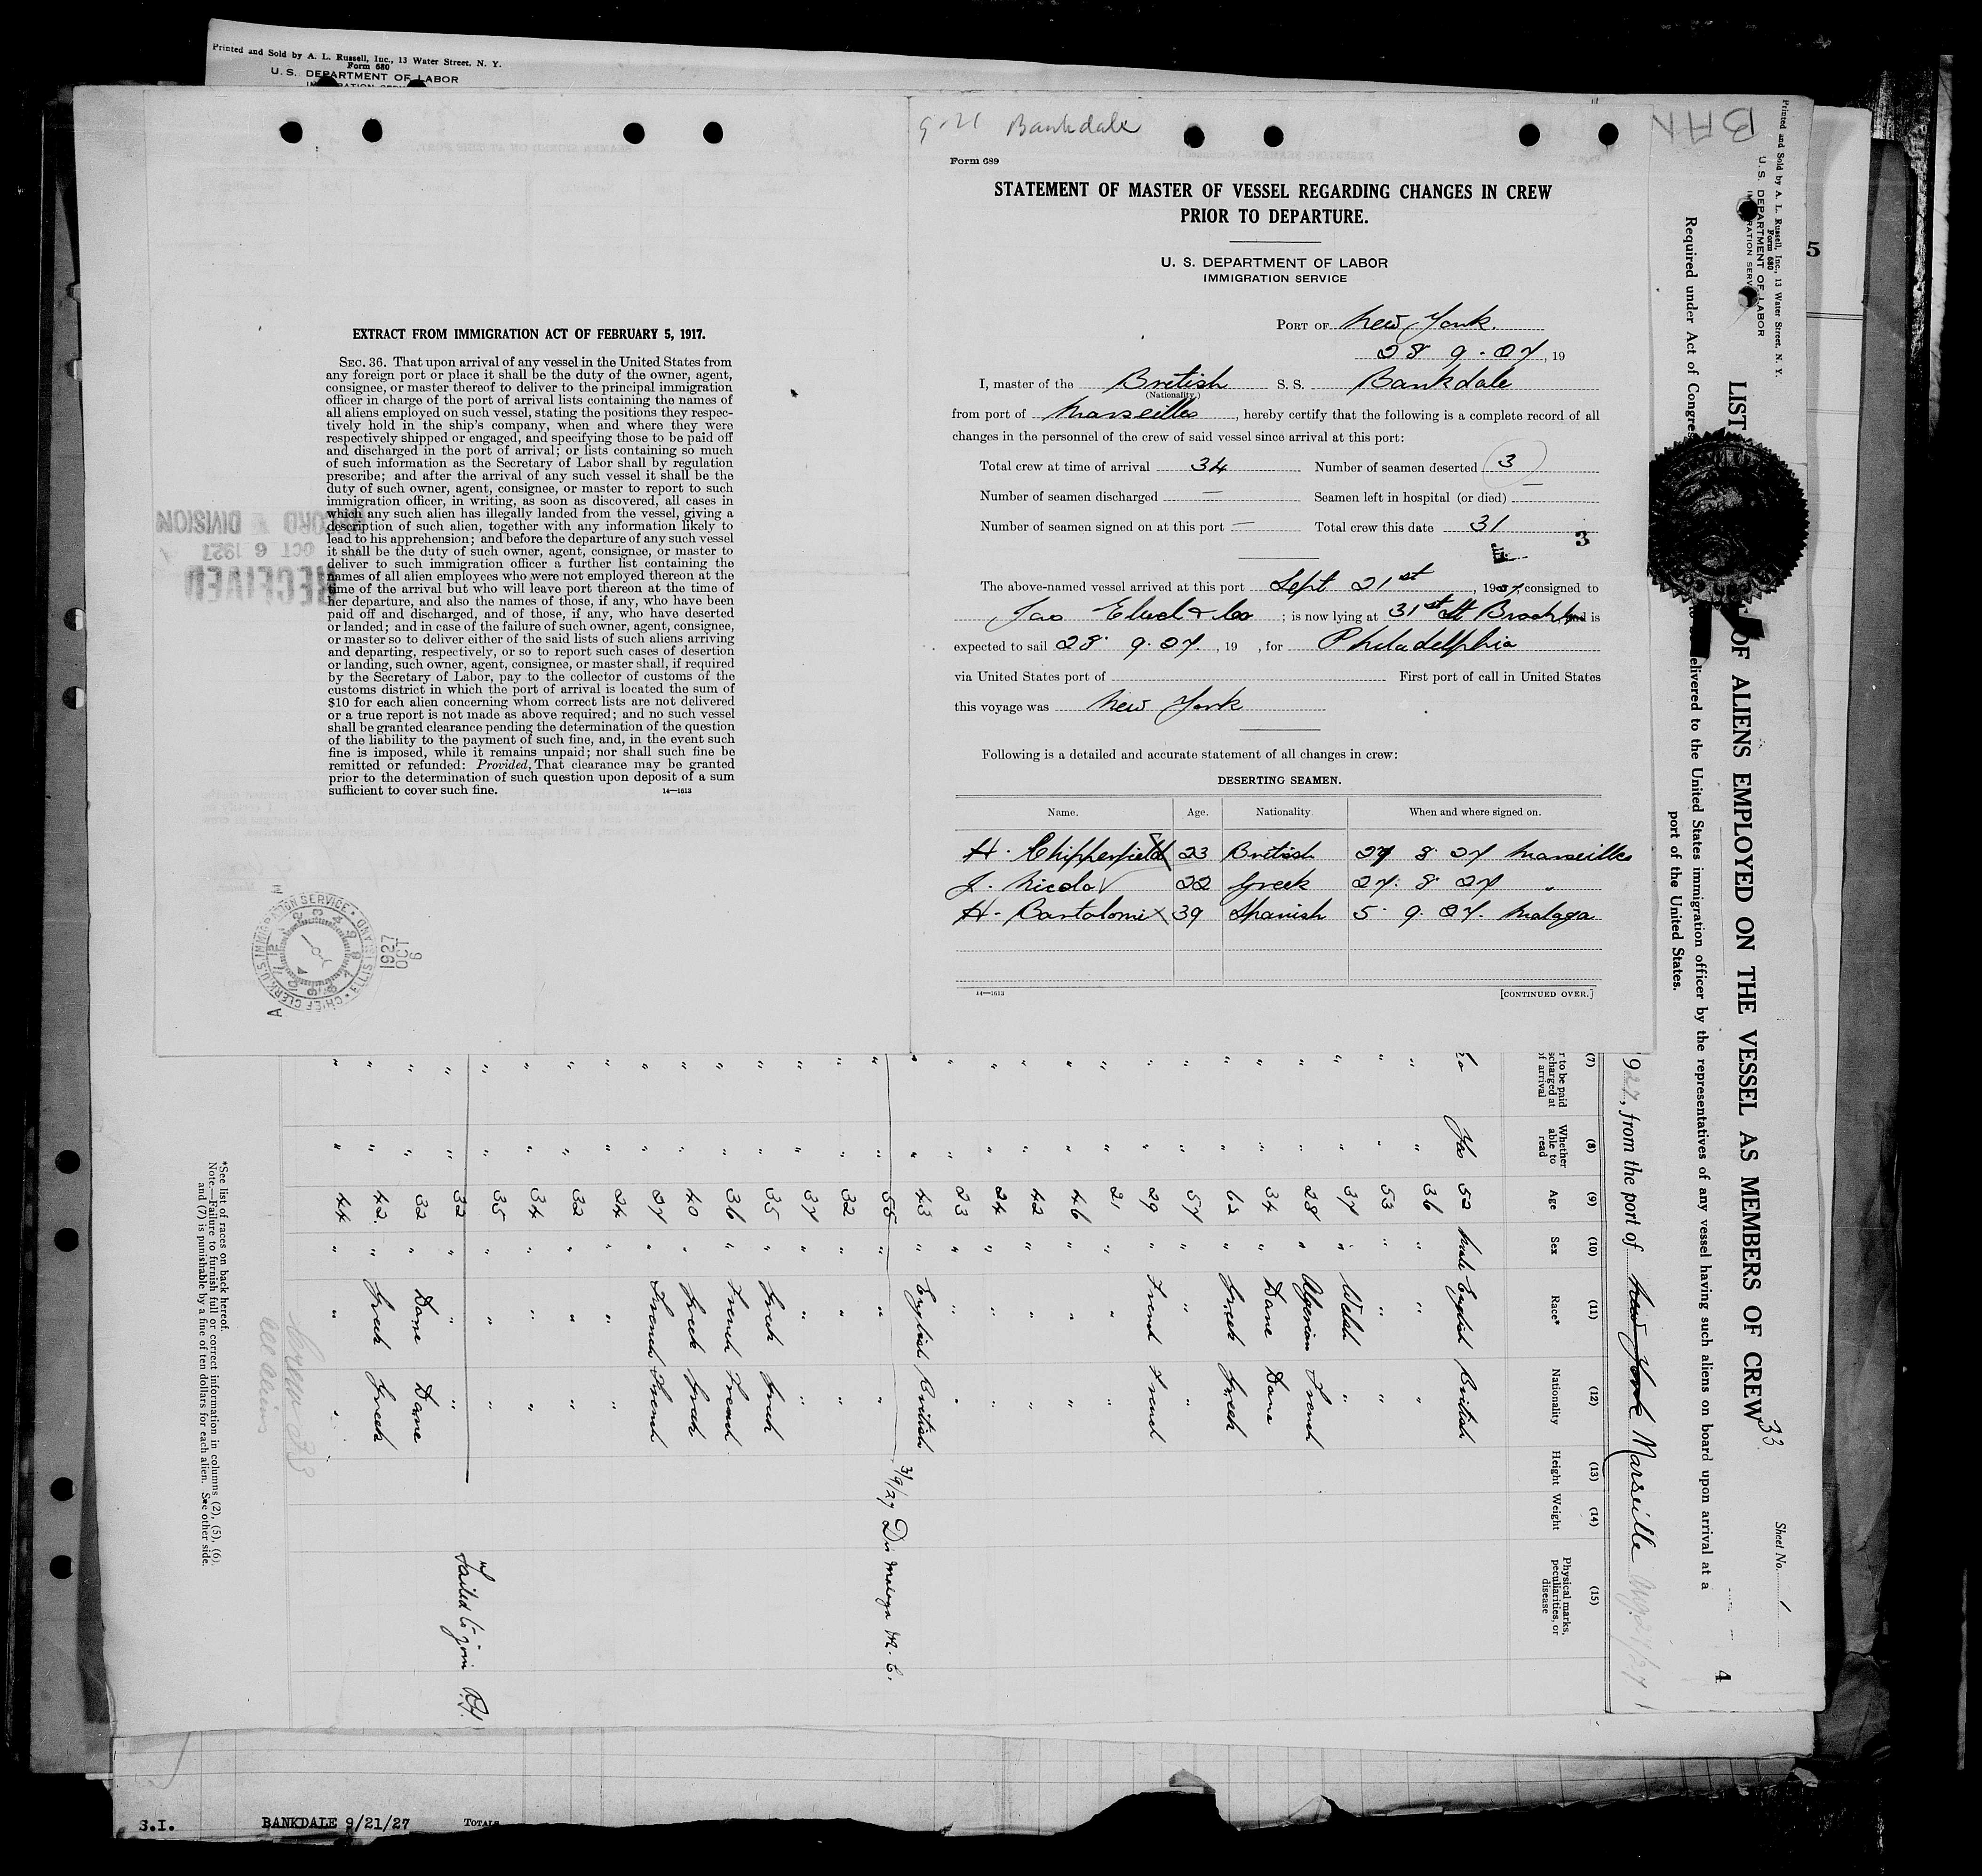 Printed and Sold by A. L. Russell, Inc., 13 Water Street, N. Y.
Form 680
U. S. DEPARTMENT OF LABOR
EXTRACT FROM IMMIGRATION ACT OF FEBRUARY 5, 1917.
SEC. 36. That upon arrival of any vessel in the United States from
any foreign port or place it shall be the duty of the owner, agent,
consignee, or master thereof to deliver to the principal immigration
officer in charge of the port of arrival lists containing the names of
all aliens employed on such vessel, stating the positions they respec-
tively hold in the ship's company, when and where they were
respectively shipped or engaged, and specifying those to be paid off
and discharged in the port of arrival; or lists containing so much
of such information as the Secretary of Labor shall by regulation
prescribe; and after the arrival of any such vessel it shall be the
duty of such owner, agent, consignee, or master to report to such
immigration officer, in writing, as soon as discovered, all cases in
which any such alien has illegally landed from the vessel, giving a
description of such alien, together with any information likely to
lead to his apprehension; and before the departure of any such vessel
it shall be the duty of such owner, agent, consignee, or master to
deliver to such immigration officer a further list containing the
names of all alien employees who were not employed thereon at the
time of the arrival but who will leave port thereon at the time of
her departure, and also the names of those, if any, who have been
paid off and discharged, and of those, if any, who have deserted
or landed; and in case of the failure of such owner, agent, consignee,
or master so to deliver either of the said lists of such aliens arriving
and departing, respectively, or so to report such cases of desertion
or landing, such owner, agent, consignee, or master shall, if required
by the Secretary of Labor, pay to the collector of customs of the
customs district in which the port of arrival is located the sum of
$10 for each alien concerning whom correct lists are not delivered
or a true report is not made as above required; and no such vessel
shall be granted clearance pending the determination of the question
of the liability to the payment of such fine, and, in the event such
fine is imposed, while it remains unpaid; nor shall such fine be
remitted or refunded: Provided, That clearance may be granted
prior to the determination of such question upon deposit of a sum
sufficient to cover such fine.
14—1613
RECORD DIVISION
OCT 6 1927
RECEIVED
U.S. IMMIGRATION SERVICE · ELLIS ISLAND · CHIEF CLERK
OCT 6 1927
9-21 Bankdale
Form 689
STATEMENT OF MASTER OF VESSEL REGARDING CHANGES IN CREW
PRIOR TO DEPARTURE.
U. S. DEPARTMENT OF LABOR
IMMIGRATION SERVICE
PORT OF New York.
28 9.27, 19
I, master of the British S. S. Bankdale
(Nationality.)
from port of Marseilles, hereby certify that the following is a complete record of all
changes in the personnel of the crew of said vessel since arrival at this port:
Total crew at time of arrival 34 Number of seamen deserted 3
Number of seamen discharged — Seamen left in hospital (or died) —
Number of seamen signed on at this port — Total crew this date 31
3
The above-named vessel arrived at this port Sept 21st, 1927, consigned to
Jas Elwel & Co ; is now lying at 31st St Brook and is
expected to sail 28. 9. 27., 19 , for Philadelphia
via United States port of First port of call in United States
this voyage was New York
Following is a detailed and accurate statement of all changes in crew:
DESERTING SEAMEN.
Name. Age. Nationality. When and where signed on.
H. Chipperfield 23 British 27 8 27 Marseilles
J. Nicola 22 Greek 27. 8 27 "
H. Bartolomi 39 Spanish 5. 9. 27. Malaga
14—1613
[CONTINUED OVER.]
BAN
Printed and Sold by A. L. Russell, Inc., 13 Water Street, N. Y.
Form 680
U. S. DEPARTMENT OF LABOR
5
LIST OF ALIENS EMPLOYED ON THE VESSEL AS MEMBERS OF CREW
33
Sheet No. 1
4
Required under Act of Congress delivered to the United States immigration officer by the representatives of any vessel having such aliens on board upon arrival at a
port of the United States.
1927, from the port of New York Marseille Aug. 27/27
(7) (8) (9) (10) (11) (12) (13) (14) (15)
r to be paid scharged at of arrival
Whether able to read
Age
Sex
Race*
Nationality
Height
Weight
Physical marks, peculiarities, or disease
No Yes 52 Male English British
" " 36 " " "
" " 53 " " "
" " 37 " Welsh "
" " 28 " Algerian French
" " 34 " Dane Dane
" " 62 " Greek Greek
" " 57 " " "
" " 29 " French French
" " 21 " " "
" " 46 " " "
" " 42 " " "
" " 24 " " "
" " 23 " " "
" " 43 " English British
" " 55 " " " 3/9/27 Dis Malaga
" " 32 " " "
" " 37 " " "
" " 35 " Greek Greek
" " 36 " French French
" " 40 " Greek Greek
" " 27 " French French
" " 24 " " "
" " 32 " " "
" " 34 " " "
" " 35 " " "
" " 32 " " " Failed to join
" " 32 " Dane Dane
" " 42 " Greek Greek
" " 44 " " "
Crew 33
all aliens
*See list of races on back hereof.
Note.—Failure to furnish full or correct information in columns (2), (5), (6),
and (7) is punishable by a fine of ten dollars for each alien. See other side.
S.I. BANKDALE 9/21/27 TOTALS